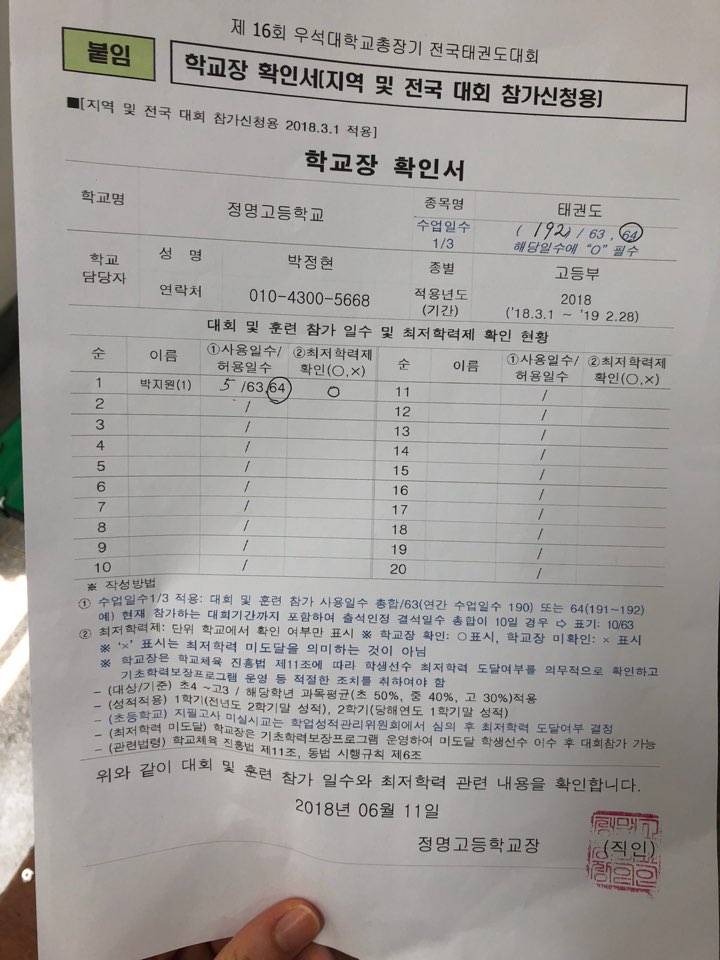 제 16회 우석대학교총장기 전국태권도대회
붙임
학교장 확인서[지역 및 전국 대회 참가신청용]
■[지역 및 전국 대회 참가신청용 2018.3.1 적용]
학교장 확인서
학교명 정명고등학교 종목명 태권도
수업일수 1/3 ( 192 ) / 63 , 64
해당일수에 "O" 필수
학교 담당자 성 명 박정현 종별 고등부
연락처 010-4300-5668 적용년도 (기간) 2018
('18.3.1 ~ '19 2.28)
대회 및 훈련 참가 일수 및 최저학력제 확인 현황
순 이름 ①사용일수/허용일수 ②최저학력제 확인(○,×) 순 이름 ①사용일수/허용일수 ②최저학력제 확인(○,×)
1 박지원(1) 5 /63,64 ○ 11 /
2 / 12 /
3 / 13 /
4 / 14 /
5 / 15 /
6 / 16 /
7 / 17 /
8 / 18 /
9 / 19 /
10 / 20 /
※ 작성방법
① 수업일수1/3 적용: 대회 및 훈련 참가 사용일수 총합/63(연간 수업일수 190) 또는 64(191~192)
예) 현재 참가하는 대회기간까지 포함하여 출석인정 결석일수 총합이 10일 경우 ⇨ 표기: 10/63
② 최저학력제: 단위 학교에서 확인 여부만 표시 ※ 학교장 확인: ○표시, 학교장 미확인: × 표시
※ '×' 표시는 최저학력 미도달을 의미하는 것이 아님
※ 학교장은 학교체육 진흥법 제11조에 따라 학생선수 최저학력 도달여부를 의무적으로 확인하고
기초학력보장프로그램 운영 등 적절한 조치를 취하여야 함
- (대상/기준) 초4 ~고3 / 해당학년 과목평균(초 50%, 중 40%, 고 30%)적용
- (성적적용) 1학기(전년도 2학기말 성적), 2학기(당해연도 1학기말 성적)
- (초등학교) 지필고사 미실시교는 학업성적관리위원회에서 심의 후 최저학력 도달여부 결정
- (최저학력 미도달) 학교장은 기초학력보장프로그램 운영하여 미도달 학생선수 이수 후 대회참가 가능
- (관련법령) 학교체육 진흥법 제11조, 동법 시행규칙 제6조
위와 같이 대회 및 훈련 참가 일수와 최저학력 관련 내용을 확인합니다.
2018년 06월 11일
정명고등학교장 (직인)